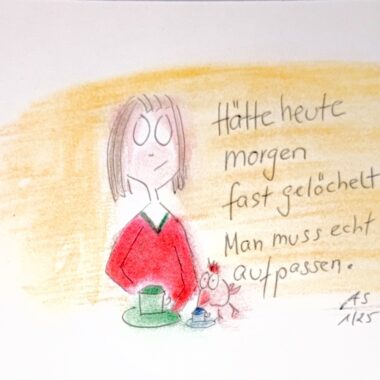 Hätte heute
morgen
fast gelöchelt
Man muss echt
aufpassen.
AS
1/25